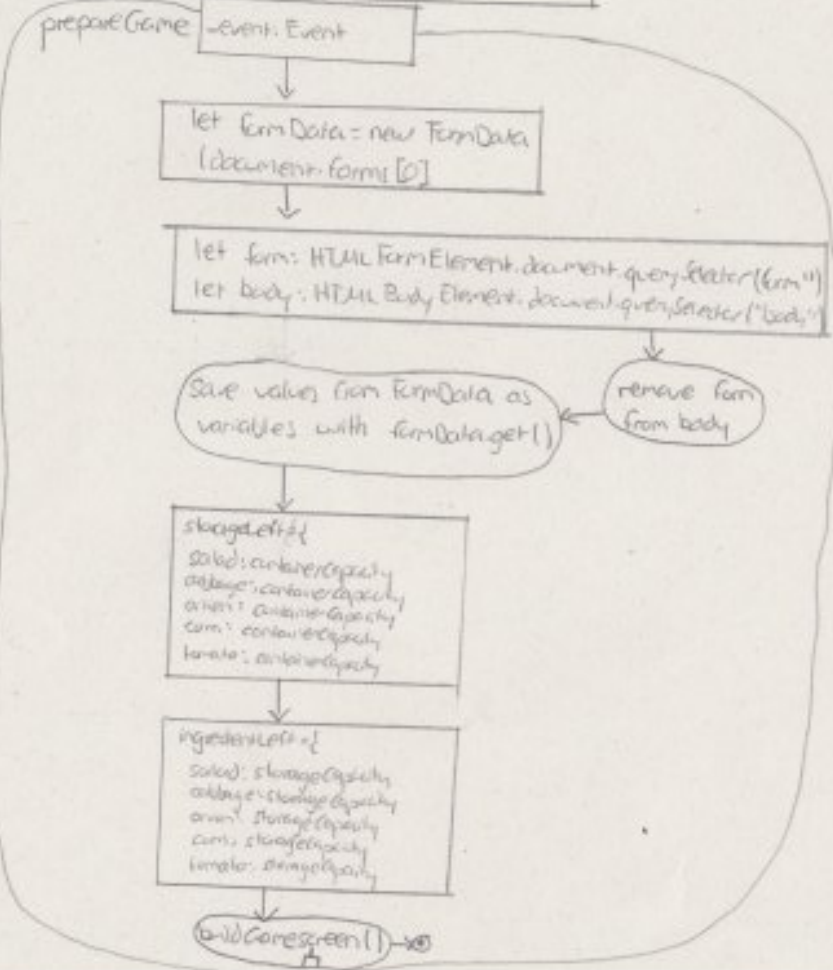 prepareGame
_event: Event
let formData = new FormData
(document.forms[0]
let form: HTMLFormElement.document.querySelector(form")
let body: HTMLBodyElement.document.querySelector("body")
remove form
from body
Save values from FormData as
variables with formData.get()
storageLeft={
salad: containerCapacity
cabbage: containerCapacity
onion: containerCapacity
corn: containerCapacity
tomato: containerCapacity
ingredientLeft={
salad: storageCapacity
cabbage: storageCapacity
onion: storageCapacity
corn: storageCapacity
tomato: storageCapacity
buildGamescreen()